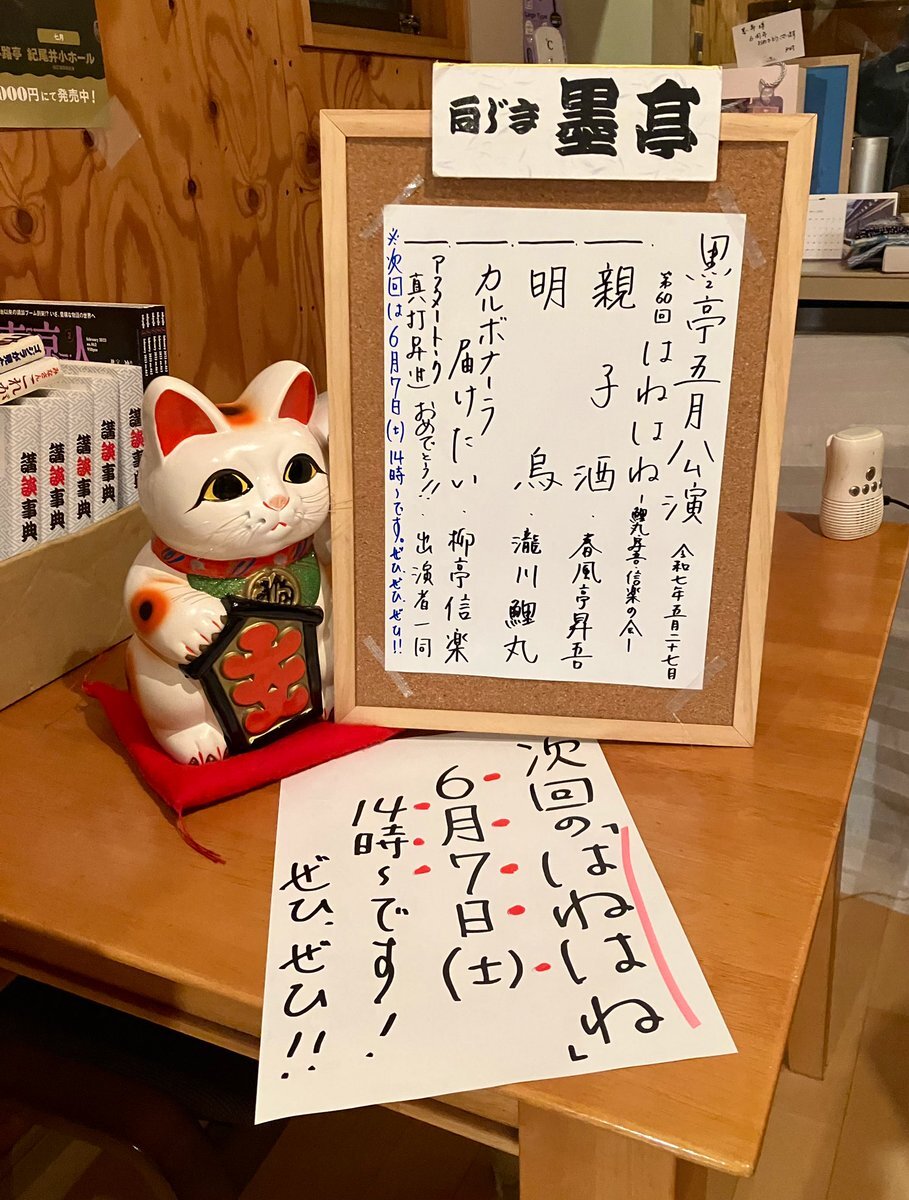 向じま 墨亭
墨亭五月公演 令和七年五月二十七日
第60回 はねはね ー鯉丸・昇吾・信楽の会ー
一、親子酒・春風亭昇吾
一、明烏・瀧川鯉丸
一、カルボナーラ届けたい・柳亭信楽
一、アフタートーク 真打昇進おめでとう!!・出演者一同
※次回は6月7日(土)14時〜です。ぜひ、ぜひ、ぜひ!!
次回の「はねはね」
6月7日(土)
14時〜です!
ぜひ、ぜひ!!
七月
路亭 紀尾井小ホール
000円にて発売中!
東京人
february 2023
講談事典
講談事典
講談事典
講談事典
講談事典